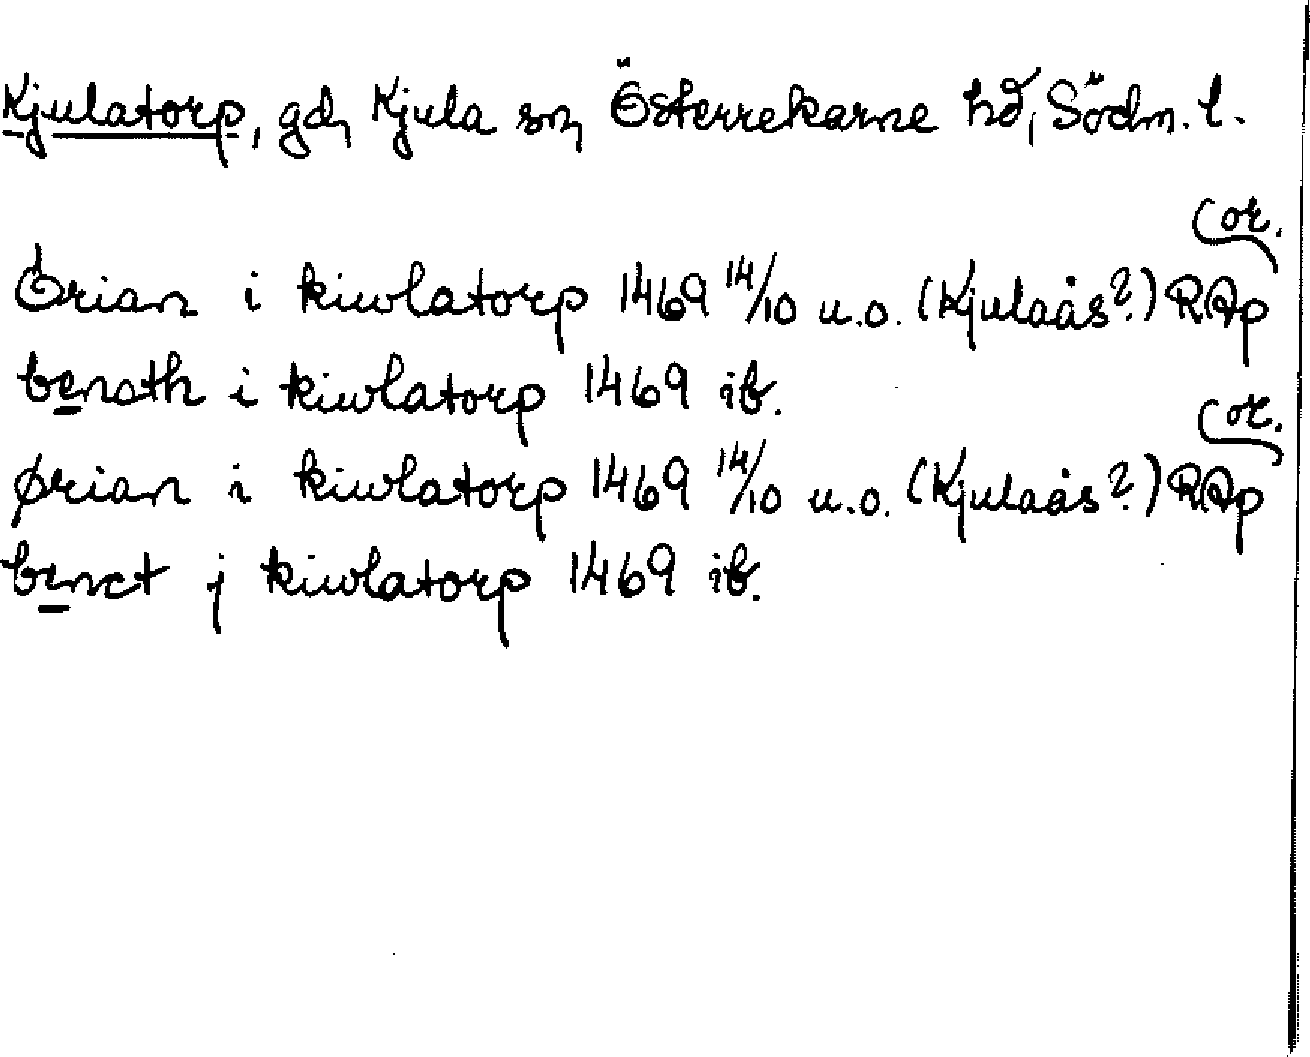 Kjulatorp, gd, Kjula sn, Österrekarne hd, Södm. l.
Örian i kiwlatorp 1469 14/10 u.o. (Kjulaås?) RAp or.
bencth i kiwlatorp 1469 ib.
ørian i kiwlatorp 1469 14/10 u.o. (Kjulaås?) RAp or.
benct j kiwlatorp 1469 ib.